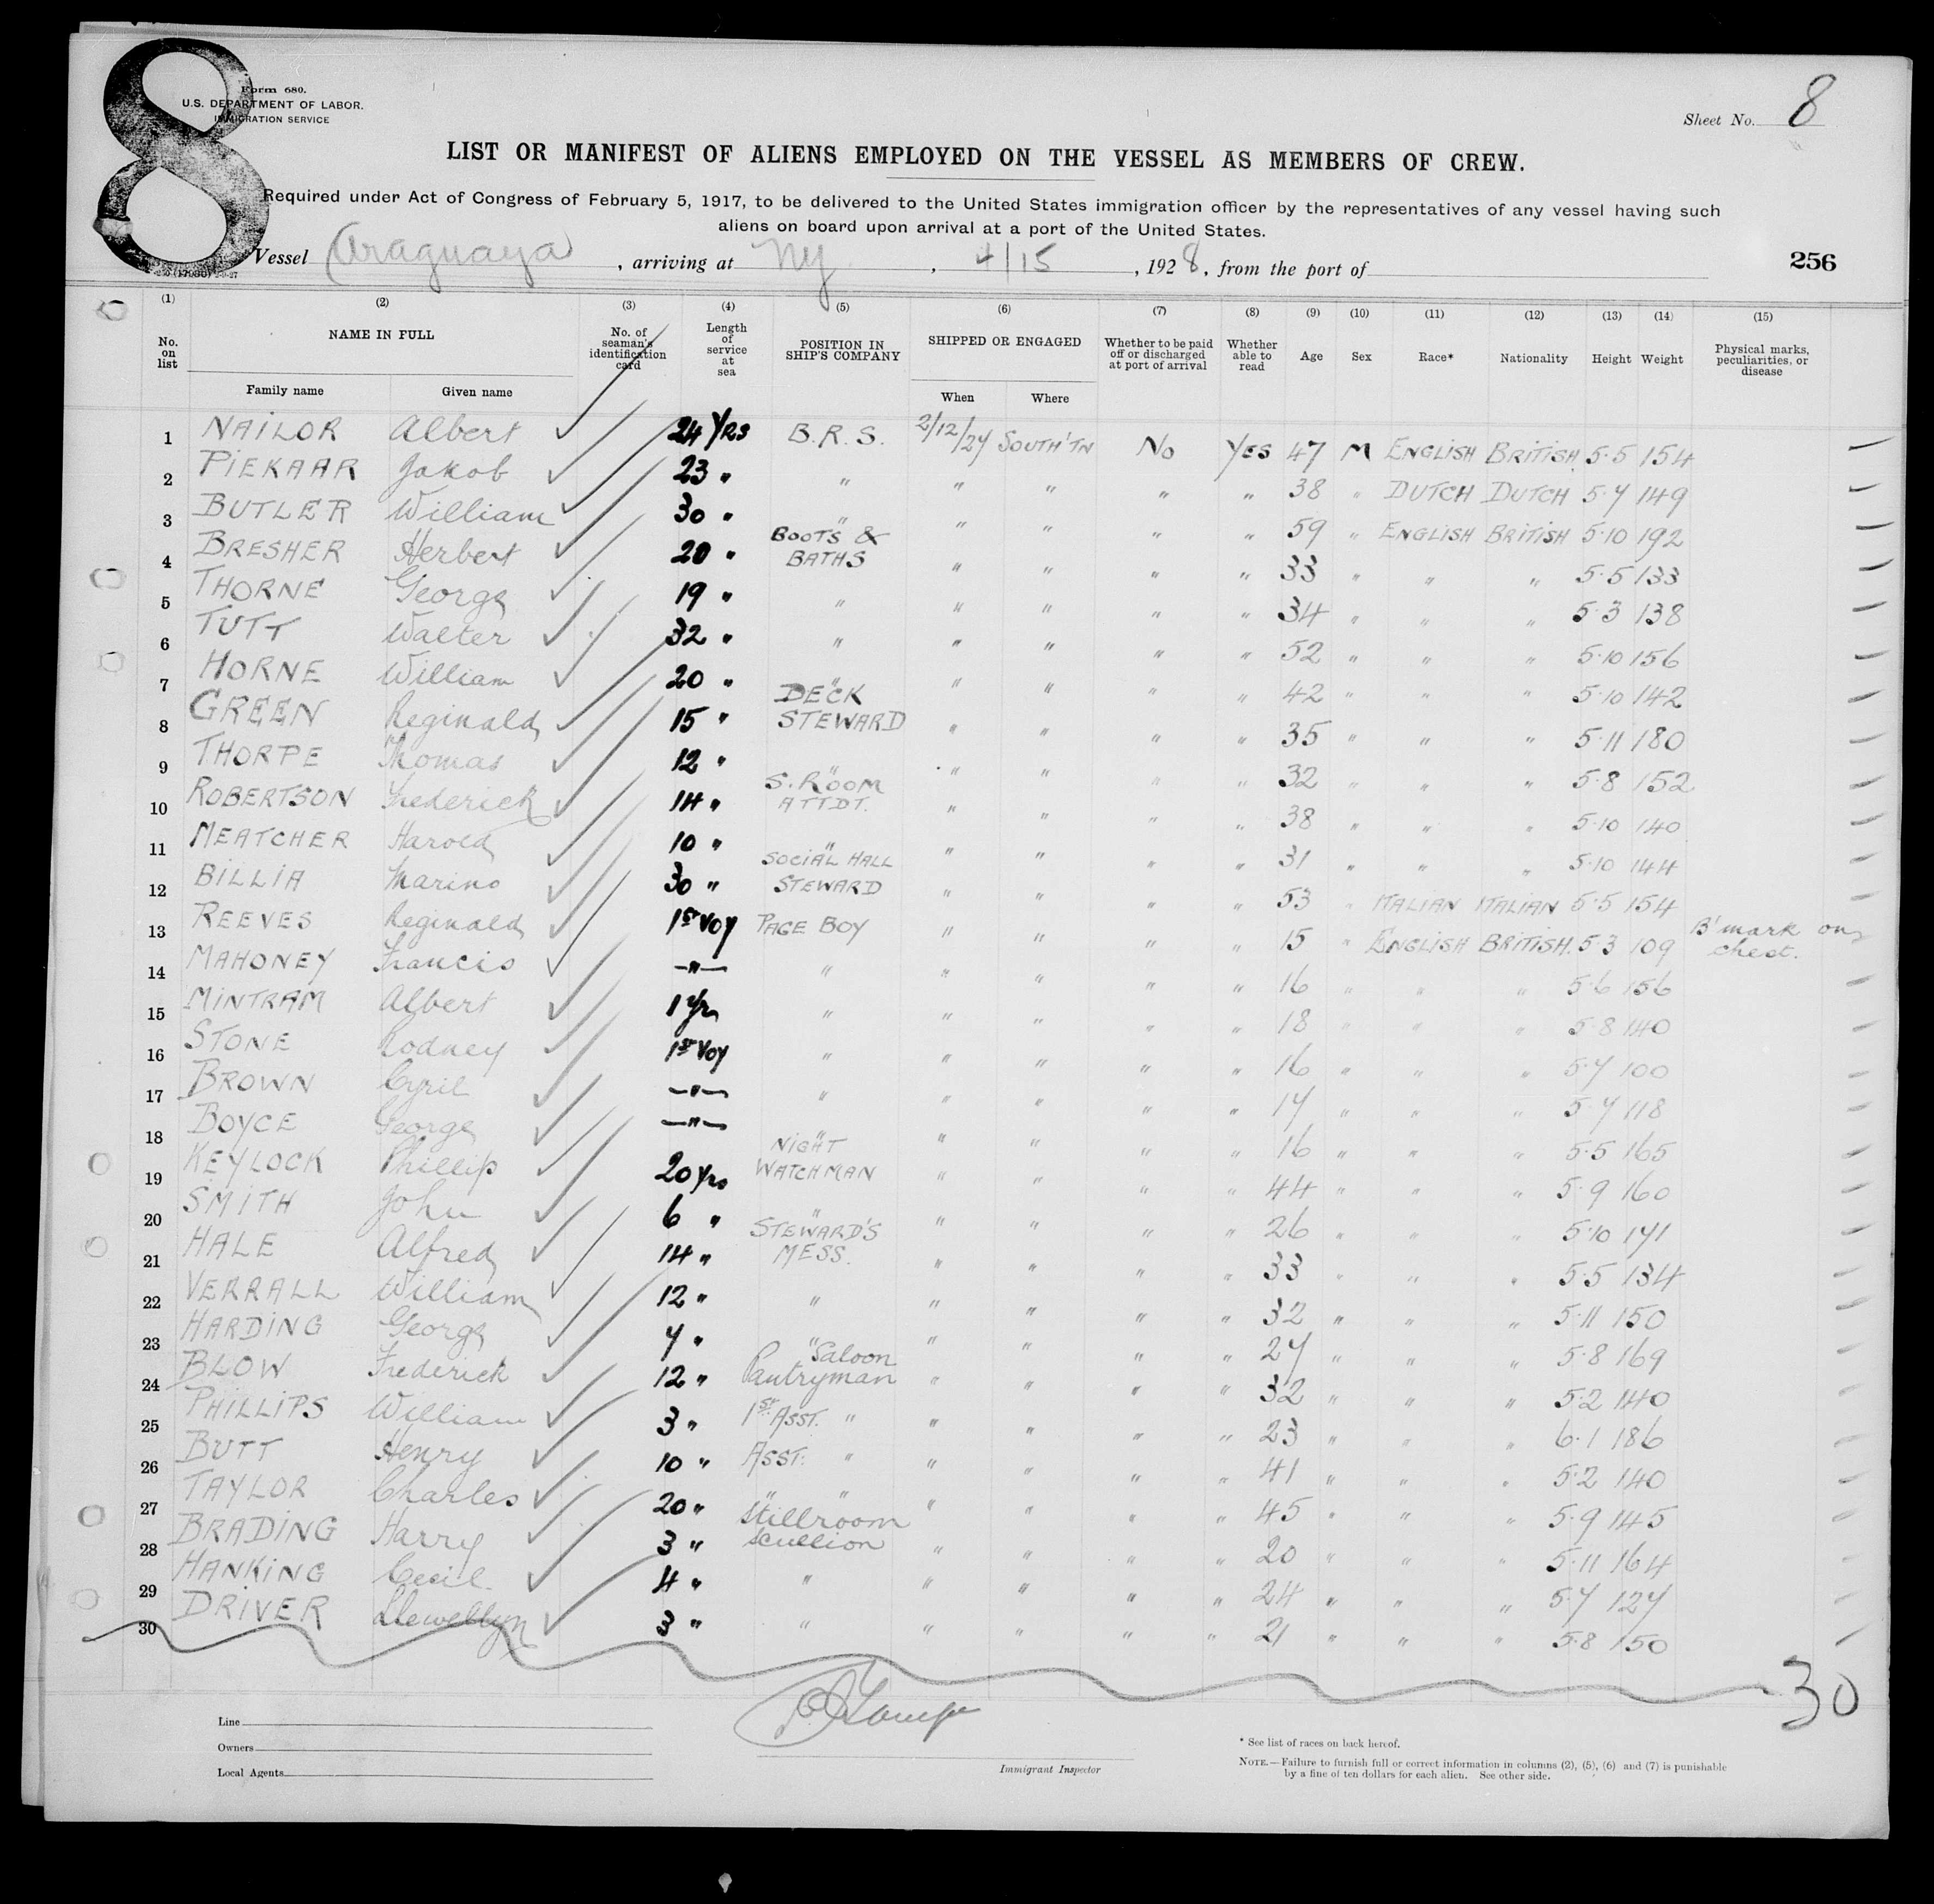 8
Form 680.
U.S. DEPARTMENT OF LABOR.
IMMIGRATION SERVICE
Sheet No. 8
LIST OR MANIFEST OF ALIENS EMPLOYED ON THE VESSEL AS MEMBERS OF CREW.
Required under Act of Congress of February 5, 1917, to be delivered to the United States immigration officer by the representatives of any vessel having such
aliens on board upon arrival at a port of the United States.
Vessel Araguaya, arriving at NY, 4/15, 1928, from the port of
256
(1) (2) (3) (4) (5) (6) (7) (8) (9) (10) (11) (12) (13) (14) (15)
No. on list NAME IN FULL No. of seaman's identification card Length of service at sea POSITION IN SHIP'S COMPANY SHIPPED OR ENGAGED Whether to be paid off or discharged at port of arrival Whether able to read Age Sex Race* Nationality Height Weight Physical marks, peculiarities, or disease
Family name Given name When Where
1 NAILOR Albert 24 YRS B.R.S. 2/12/27 SOUTH'TN No YES 47 M ENGLISH BRITISH 5.5 154
2 PIEKAAR Jakob 23 " " " " " " 38 " DUTCH DUTCH 5.7 149
3 BUTLER William 30 " " " " " " 59 " ENGLISH BRITISH 5.10 192
4 BRESHER Herbert 20 " BOOTS & BATHS " " " " 33 " " " 5.5 133
5 THORNE George 19 " " " " " " 34 " " " 5.3 138
6 TUTT Walter 32 " " " " " " 52 " " " 5.10 156
7 HORNE William 20 " " " " " " 42 " " " 5.10 142
8 GREEN Reginald 15 " DECK STEWARD " " " " 35 " " " 5.11 180
9 THORPE Thomas 12 " " " " " " 32 " " " 5.8 152
10 ROBERTSON Frederick 14 " S. ROOM ATTDT. " " " " 38 " " " 5.10 140
11 MEATCHER Harold 10 " " " " " " 31 " " " 5.10 144
12 BILLIA Marino 30 " SOCIAL HALL STEWARD " " " " 53 " ITALIAN ITALIAN 5.5 154
13 REEVES Reginald 1st VOY PAGE BOY " " " " 15 " ENGLISH BRITISH. 5.3 109 B'mark on chest.
14 MAHONEY Francis " " " " " " 16 " " " 5.6 156
15 MINTRAM Albert 1 Yr " " " " " 18 " " " 5.8 140
16 STONE Rodney 1st VOY " " " " " 16 " " " 5.7 100
17 BROWN Cyril " " " " " " 17 " " " 5.7 118
18 BOYCE George " " " " " " 16 " " " 5.5 165
19 KEYLOCK Phillip 20 Yrs NIGHT WATCHMAN " " " " 44 " " " 5.9 160
20 SMITH John 6 " " " " " " 26 " " " 5.10 171
21 HALE Alfred 14 " STEWARD'S MESS. " " " " 33 " " " 5.5 134
22 VERRALL William 12 " " " " " " 32 " " " 5.11 150
23 HARDING George 7 " " " " " " 27 " " " 5.8 169
24 BLOW Frederick 12 " Saloon Pantryman " " " " 32 " " " 5.2 140
25 PHILLIPS William 3 " 1st ASST. " " " " " 23 " " " 6.1 186
26 BUTT Henry 10 " ASST. " " " " " 41 " " " 5.2 140
27 TAYLOR Charles 20 " " " " " " " 45 " " " 5.9 145
28 BRADING Harry 3 " Stillroom scullion " " " " 20 " " " 5.11 164
29 HANKING Cecil 4 " " " " " " 24 " " " 5.7 127
30 DRIVER Llewellyn 3 " " " " " " 21 " " " 5.8 150
30
Line
Owners
Local Agents
Immigrant Inspector
* See list of races on back hereof.
NOTE.—Failure to furnish full or correct information in columns (2), (5), (6) and (7) is punishable
by a fine of ten dollars for each alien. See other side.